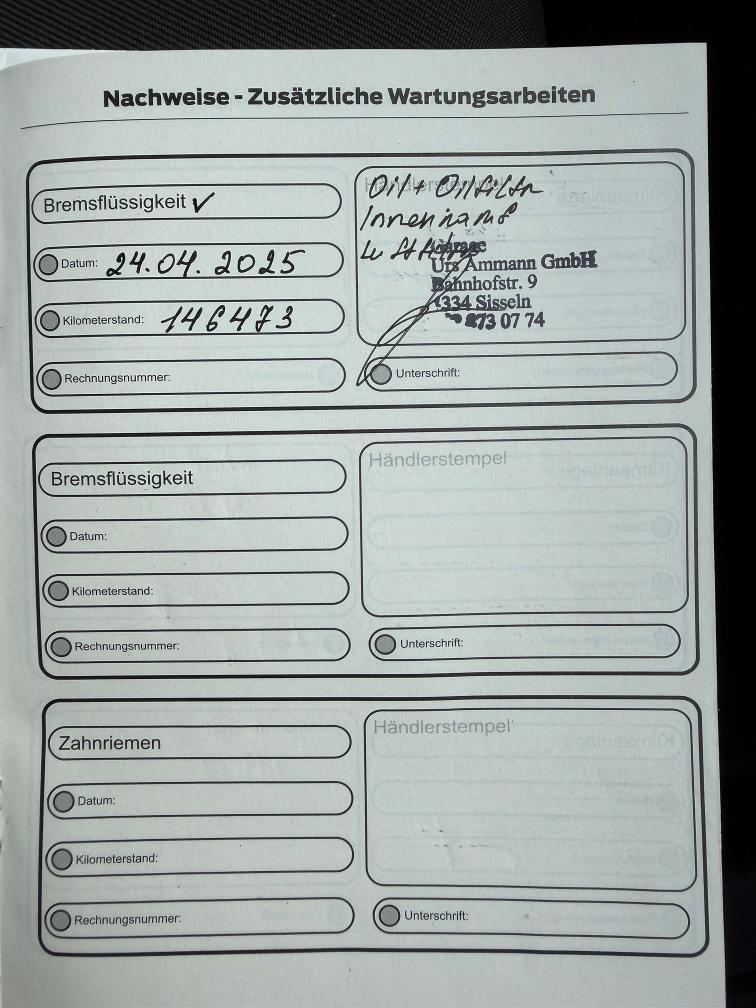 Nachweise - Zusätzliche Wartungsarbeiten
Bremsflüssigkeit ✓
Datum: 24.04.2025
Kilometerstand: 146473
Rechnungsnummer:
Händlerstempel
Oil + Oilfilter
Garage
Urs Ammann GmbH
Bahnhofstr. 9
4334 Sisseln
873 07 74
Unterschrift:
Bremsflüssigkeit
Datum:
Kilometerstand:
Rechnungsnummer:
Händlerstempel
Unterschrift:
Zahnriemen
Datum:
Kilometerstand:
Rechnungsnummer:
Händlerstempel
Unterschrift: